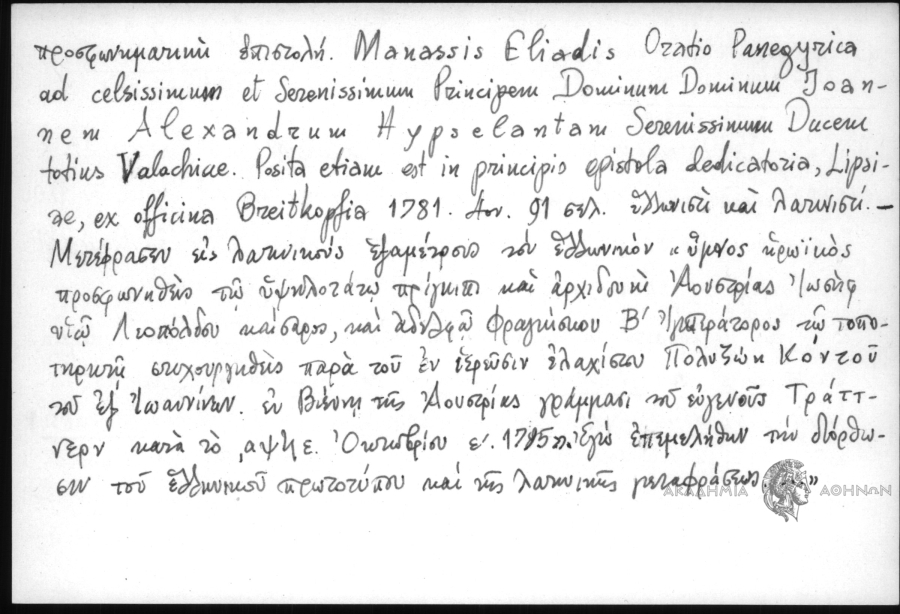 προσφωνηματική ἐπιστολή. Manassis Eliadis Oratio Panegyrica
ad celsissimum et Serenissimum Principem Dominum Dominum Joan-
nem Alexandrum Hypselantam Serenissimum Ducem
totius Valachiae. Posita etiam est in principio epistola dedicatoria, Lipsi-
ae, ex officina Breitkopfia 1781. 91 σελ. ἑλληνιστὶ καὶ λατινιστί. —
Μετέφρασεν εἰς λατινικοὺς ἑξαμέτρους τὸν ἑλληνικὸν « ὕμνος ἡρωϊκὸς
προσφωνηθεὶς τῷ ὑψηλοτάτῳ πρίγκιπι καὶ ἀρχιδουκὶ Ἀουστρίας Ἰωσὴφ
υἱῷ Λεοπόλδου καίσαρος, καὶ ἀδελφῷ Φραγκίσκου Β' Ἰμπεράτορος τῷ τοπο-
τηρητῇ στιχουργηθεὶς παρὰ τοῦ ἐν ἱερεῦσιν ἐλαχίστου Πολυζώη Κόντοῦ
τοῦ ἐξ Ἰωαννίνων. ἐν Βιέννῃ τῆς Ἀουστρίας γράμμασι τοῦ εὐγενοῦς Τράττ-
νερν κατὰ τὸ ͵αψϟε. Ὀκτωβρίου ε'. Ἐγὼ ἐπεμελήθην τὴν διόρθω-
σιν τοῦ ἑλληνικοῦ πρωτοτύπου καὶ τῆς λατινικῆς μεταφράσεως. ...»
ΑΚΑΔΗΜΙΑ ΑΘΗΝΩΝ